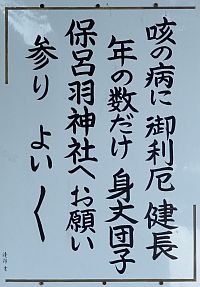 咳の病に御利厄健長
年の数だけ身丈団子
保呂羽神社へお願い
参りよいく